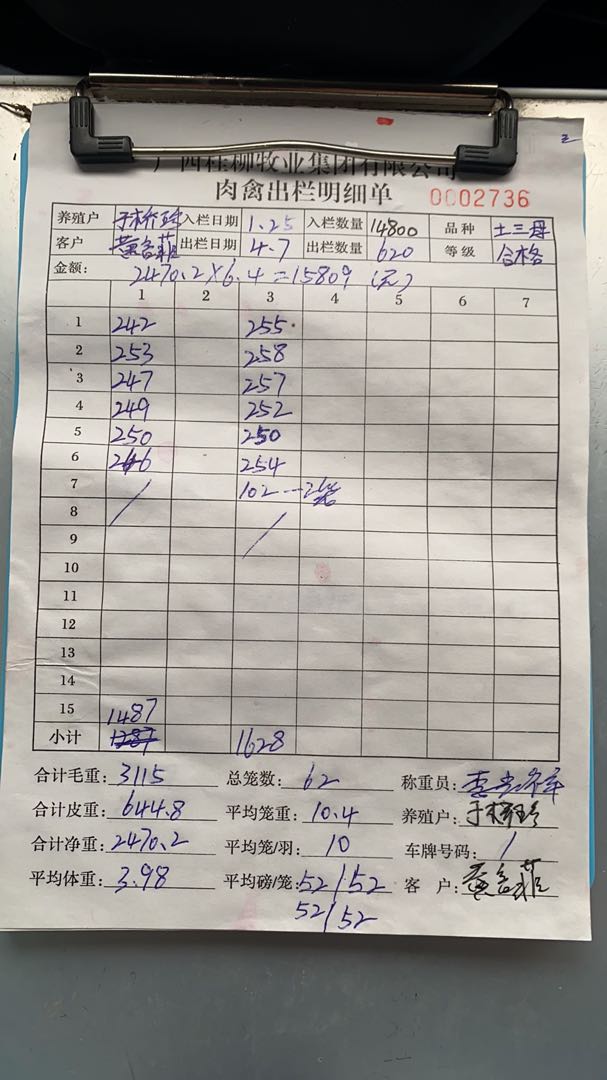 广西桂柳牧业集团有限公司
肉禽出栏明细单 0002736
养殖户 入栏日期 1.25 入栏数量 14800 品种 土三母
客户 出栏日期 4.7 出栏数量 620 等级 合格
金额: 2470.2×6.4=15809 (元)
1 2 3 4 5 6 7
1 242 255
2 253 258
3 247 257
4 249 252
5 250 250
6 246 254
7 102
8
9
10
11
12
13
14
15 1487
小计 1287 1628
合计毛重: 3115 总笼数: 62 称重员:
合计皮重: 644.8 平均笼重: 10.4 养殖户:
合计净重: 2470.2 平均笼/羽: 10 车牌号码: /
平均体重: 3.98 平均磅/笼: 52/52 客 户:
52/52